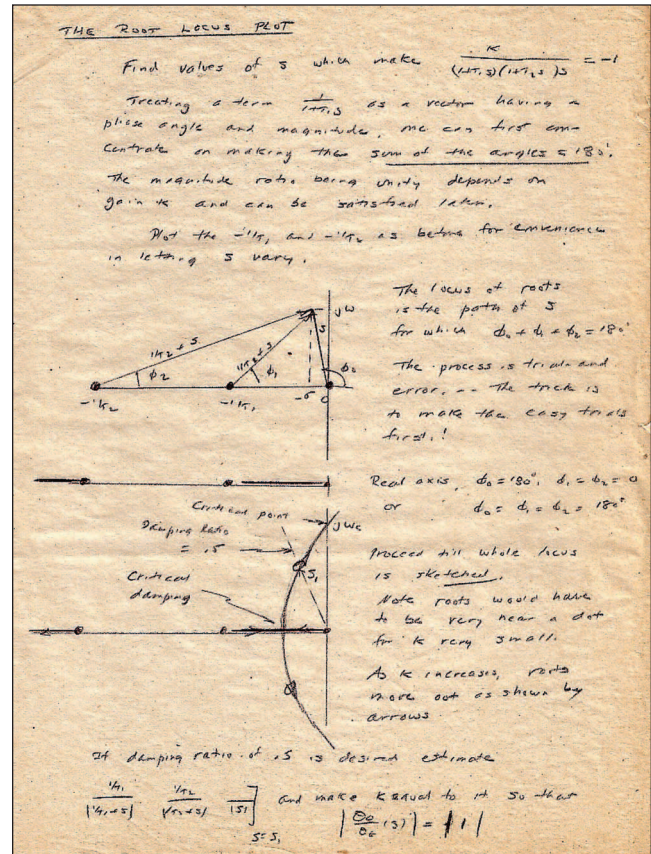 THE ROOT LOCUS PLOT
Find values of s which make K / (1+τ₁s)(1+τ₂s)s = -1
Treating a term 1/1+τ₁s as a vector having a
phase angle and magnitude, we can first con-
centrate on making the sum of the angles = 180°.
The magnitude ratio being unity depends on
gain K and can be satisfied later.
Plot the -1/τ₁ and -1/τ₂ as before for convenience
in letting s vary.
The locus of roots
is the path of S
for which ϕ₀ + ϕ₁ + ϕ₂ = 180°
The process is trial and
error. -- The trick is
to make the easy trials
first.!
jω
1/τ₂ + s
1/τ₁ + s
s
ϕ₂
ϕ₁
ϕ₀
-1/τ₂
-1/τ₁
-σ
0
Real axis, ϕ₀ = 180°, ϕ₁ = ϕ₂ = 0
or ϕ₀ = ϕ₁ = ϕ₂ = 180°
Critical point
Damping ratio
= .5
jωc
S₁
Critical
damping
Proceed till whole locus
is sketched.
Note roots would have
to be very near a dot
for K very small.
As K increases, roots
move out as shown by
arrows
If damping ratio of .5 is desired estimate
1/τ₁ / |1/τ₁+s| 1/τ₂ / |1/τ₂+s| 1/|s| ] s=s₁ and make K equal to it so that
|θ₀/θε (s)| = |1|